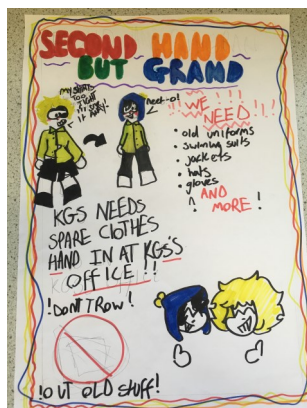 SECOND HAND
BUT GRAND
neet-o!
!!!WE!!!!
NEED!
• old uniforms
• swiming suits
• jackets
• hats
• gloves
AND
MORE!
KGS NEEDS
SPARE CLOTHES
HAND IN AT KGS'S
OFFICE!!!
!DONT TROW!
!OUT OLD STUFF!